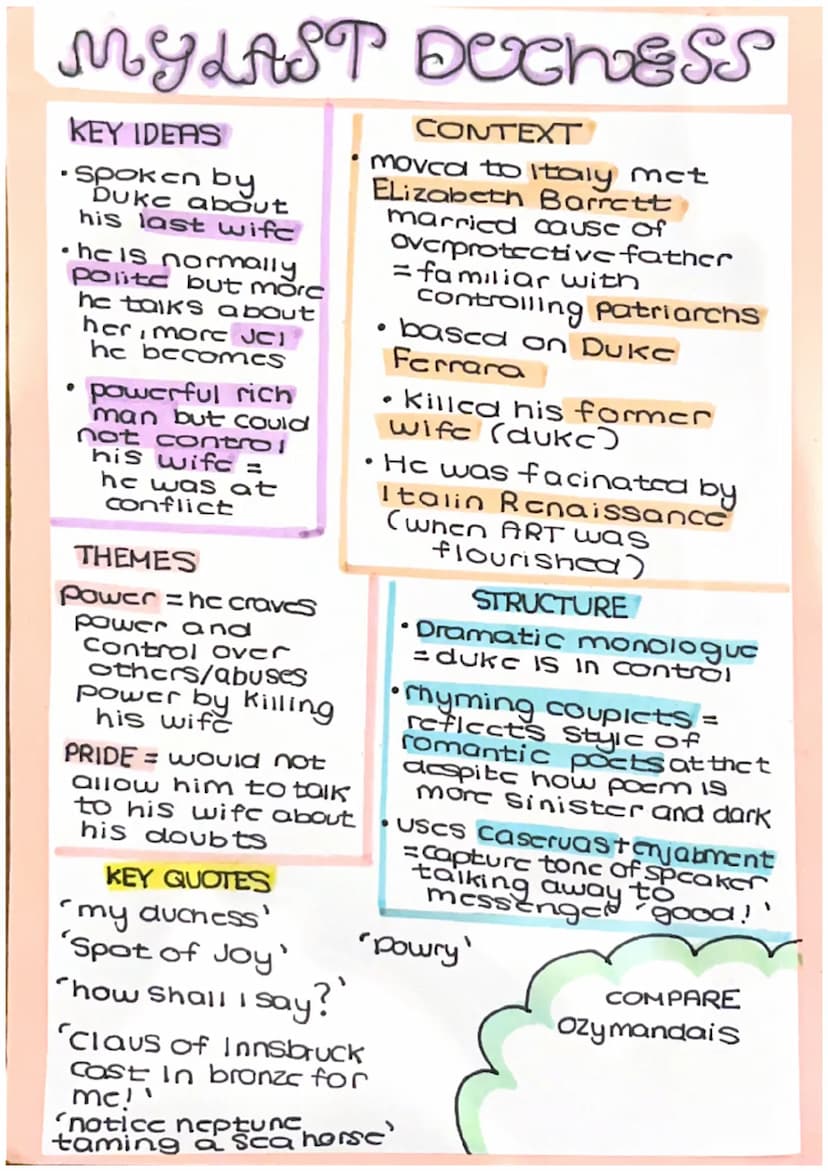 MY LAST DUCHESS
KEY IDEAS
• spoken by
Duke about
his last wife
• he is normally
polite but more
he talks about
her, more Jel
he becomes
• powerful rich
man but could
not control
his wife =
he was at
conflict
CONTEXT
• moved to Italy met
Elizabeth Barrett
married cause of
overprotective father
= familiar with
controlling patriarchs
• based on Duke
Ferrara
• Killed his former
wife (duke)
• He was facinated by
Italin Renaissance
(when ART was
flourished)
THEMES
power = he craves
power and
control over
others/abuses
power by killing
his wife
PRIDE = would not
allow him to talk
to his wife about
his doubts
STRUCTURE
• Dramatic monologue
= duke is in control
• rhyming couplets =
reflects style of
romantic poets at thet
despite how poem is
more sinister and dark
• uses caseruas + enjabment
= capture tone of speaker
talking away to
messenger 'good!'
KEY QUOTES
'my duchess'
'Spot of Joy'
'powry'
'how shall I say?'
'Claus of Innsbruck
cast in bronze for
me!'
'notice neptune
taming a sea horse'
COMPARE
Ozymandais